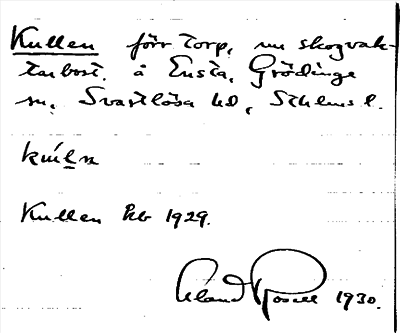 Kullen förr torp, nu skogvak-
tarbost. å Ensta, Grödinge
sn, Svartlösa hd, Sthlms l.
Kullen kb 1929.
Roland 1930.